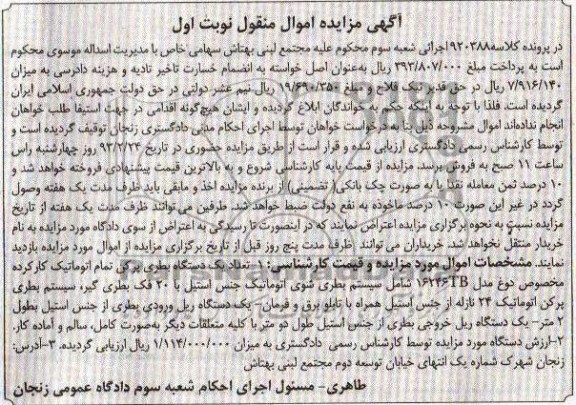 آگهی مزایده اموال منقول نوبت اول
در پرونده کلاسه ۹۲۰۳۸۸ اجرائی شعبه سوم محکوم علیه مجتمع لبنی بهتاش سهامی خاص با مدیریت اسداله موسوی محکوم
است به پرداخت مبلغ ۳۹۲/۸۰۷/۰۰۰ ریال به‌عنوان اصل خواسته به انضمام خسارت تاخیر تادیه و هزینه دادرسی به میزان
۷/۹۱۶/۱۴۰ ریال در حق قدیر نیک فلاح و مبلغ ۱۹/۶۹۰/۳۵۰ ریال نیم عشر دولتی در حق دولت جمهوری اسلامی ایران
گردیده است. فلذا با توجه به اینکه حکم به خواندگان ابلاغ گردیده و ایشان هیچ‌گونه اقدامی در جهت استیفا طلب خواهان
انجام نداده‌اند اموال مشروحه ذیل بنا به درخواست خواهان توسط اجرای احکام مدنی دادگستری زنجان توقیف گردیده است و
توسط کارشناس رسمی دادگستری ارزیابی شده و قرار است از طریق مزایده حضوری در تاریخ ۹۳/۲/۲۴ روز چهارشنبه راس
ساعت ۱۱ صبح به فروش برسد. مزایده از قیمت پایه کارشناسی شروع و به بالاترین قیمت پیشنهادی فروخته خواهد شد و
۱۰ درصد ثمن معامله نقدا یا به صورت چک بانکی( تضمینی) از برنده مزایده اخذ و مابقی باید ظرف مدت یک هفته وصول
گردد در غیر این صورت ۱۰ درصد ماخوذه به نفع دولت ضبط خواهد شد. طرفین می‌توانند ظرف مدت یک هفته از تاریخ
مزایده نسبت به نحوه برگزاری مزایده اعتراض نمایند که در اینصورت تا رسیدگی به اعتراض از سوی دادگاه مورد مزایده به نام
خریدار منتقل نخواهد شد. خریداران می توانند ظرف مدت پنج روز قبل از تاریخ برگزاری مزایده از اموال مورد مزایده بازدید
نمایند. مشخصات اموال مورد مزایده و قیمت کارشناسی: ۱-تعداد یک دستگاه بطری پرکن تمام اتوماتیک کارکرده
مخصوص دوغ مدل ۱۶۲۴۶TB شامل سیستم بطری شوی اتوماتیک جنس استیل با ۲۰ فک بطری گیر، سیستم بطری
پرکن اتوماتیک ۲۴ نازله از جنس استیل همراه با تابلو برق و فرمان- یک دستگاه ریل ورودی بطری از جنس استیل بطول
۲ متر- یک دستگاه ریل خروجی بطری از جنس استیل طول دو متر با کلیه متعلقات دیگر به‌صورت کامل، سالم و آماده کار.
۲-ارزش دستگاه مورد مزایده توسط کارشناس رسمی دادگستری به میزان ۱/۱۱۴/۰۰۰/۰۰۰ ریال ارزیابی گردیده. ۳-آدرس:
زنجان شهرک شماره یک انتهای خیابان توسعه دوم مجتمع لبنی بهتاش
طاهری- مسئول اجرای احکام شعبه سوم دادگاه عمومی زنجان